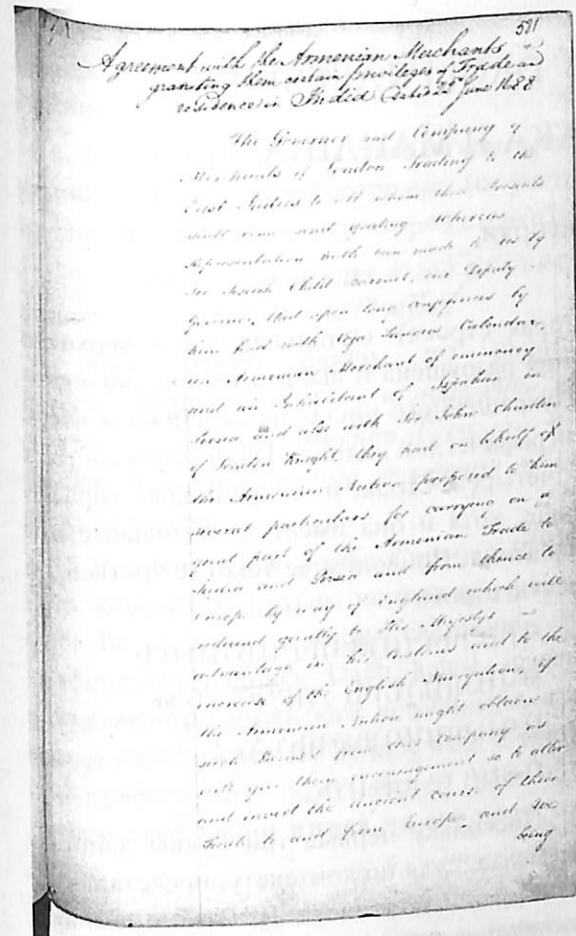 581
Agreement with the Armenian Merchants
granting them certain privileges of Trade and
residence in India dated 22 June 1688
The Governor and Company of
Merchants of London Trading to the
East Indies to all whom these presents
shall come send greeting Whereas
Representation hath been made to us by
Sir Josiah Child Baronet, our Deputy
Governor, that upon long conferences by
him had with Coja Panous Calendar,
an Armenian Merchant of eminency
and an Inhabitant of Ispahan in
Persia and also with Sir John Chardin
of London Knight, they had on behalf of
the Armenian Nation proposed to him
several particulars for carrying on a
great part of the Armenian Trade to
India and Persia and from thence to
Europe by way of England which will
redound greatly to His Majestys
advantage in his Customs and to the
increase of the English Navigation, if
the Armenian Nation might obtain
such Licence from this Company as
will give them encouragement so to alter
and invert the ancient course of their
Trade to and from Europe and We
being